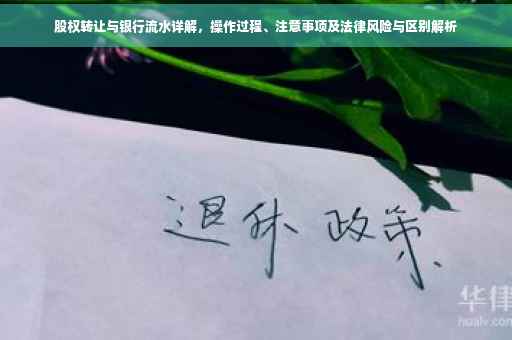 股权转让与银行流水详解，操作过程、注意事项及法律风险与区别解析
退休 政策
华律
hualv.com